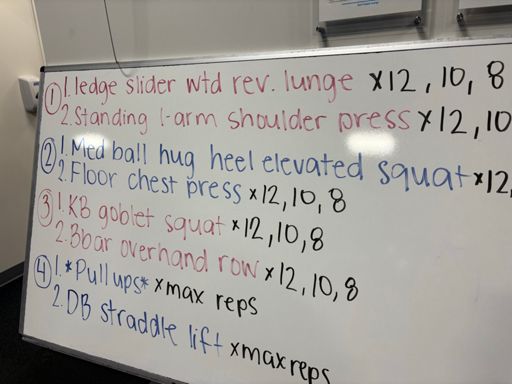 ① 1. ledge slider wtd rev. lunge x12, 10, 8
2. Standing 1-arm shoulder press x12, 10
② 1. Med ball hug heel elevated squat x12,
2. Floor chest press x12, 10, 8
③ 1. KB goblet squat x12, 10, 8
2. Bbar overhand row x12, 10, 8
④ 1. *Pull ups* xmax reps
2. DB straddle lift xmax reps